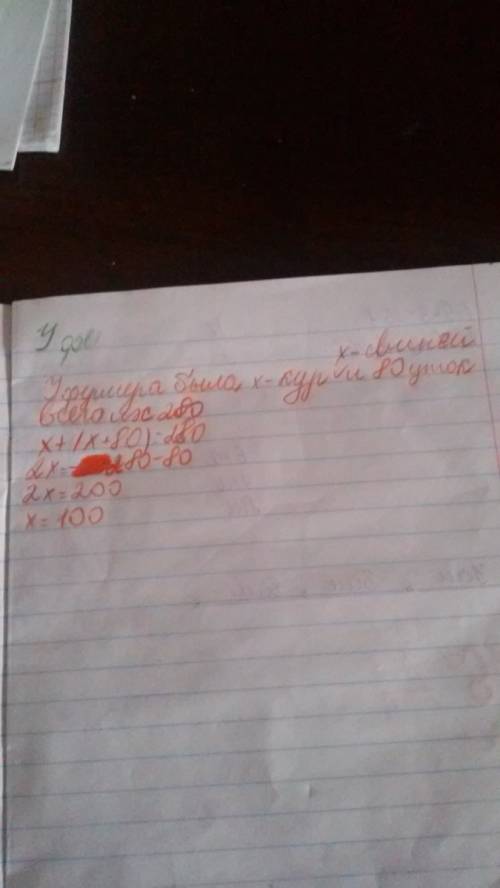 У
х-свиней
У фермера было х-кур и 80 уток
всего их 280
х+(х+80)=280
2х=280-80
2х=200
х=100